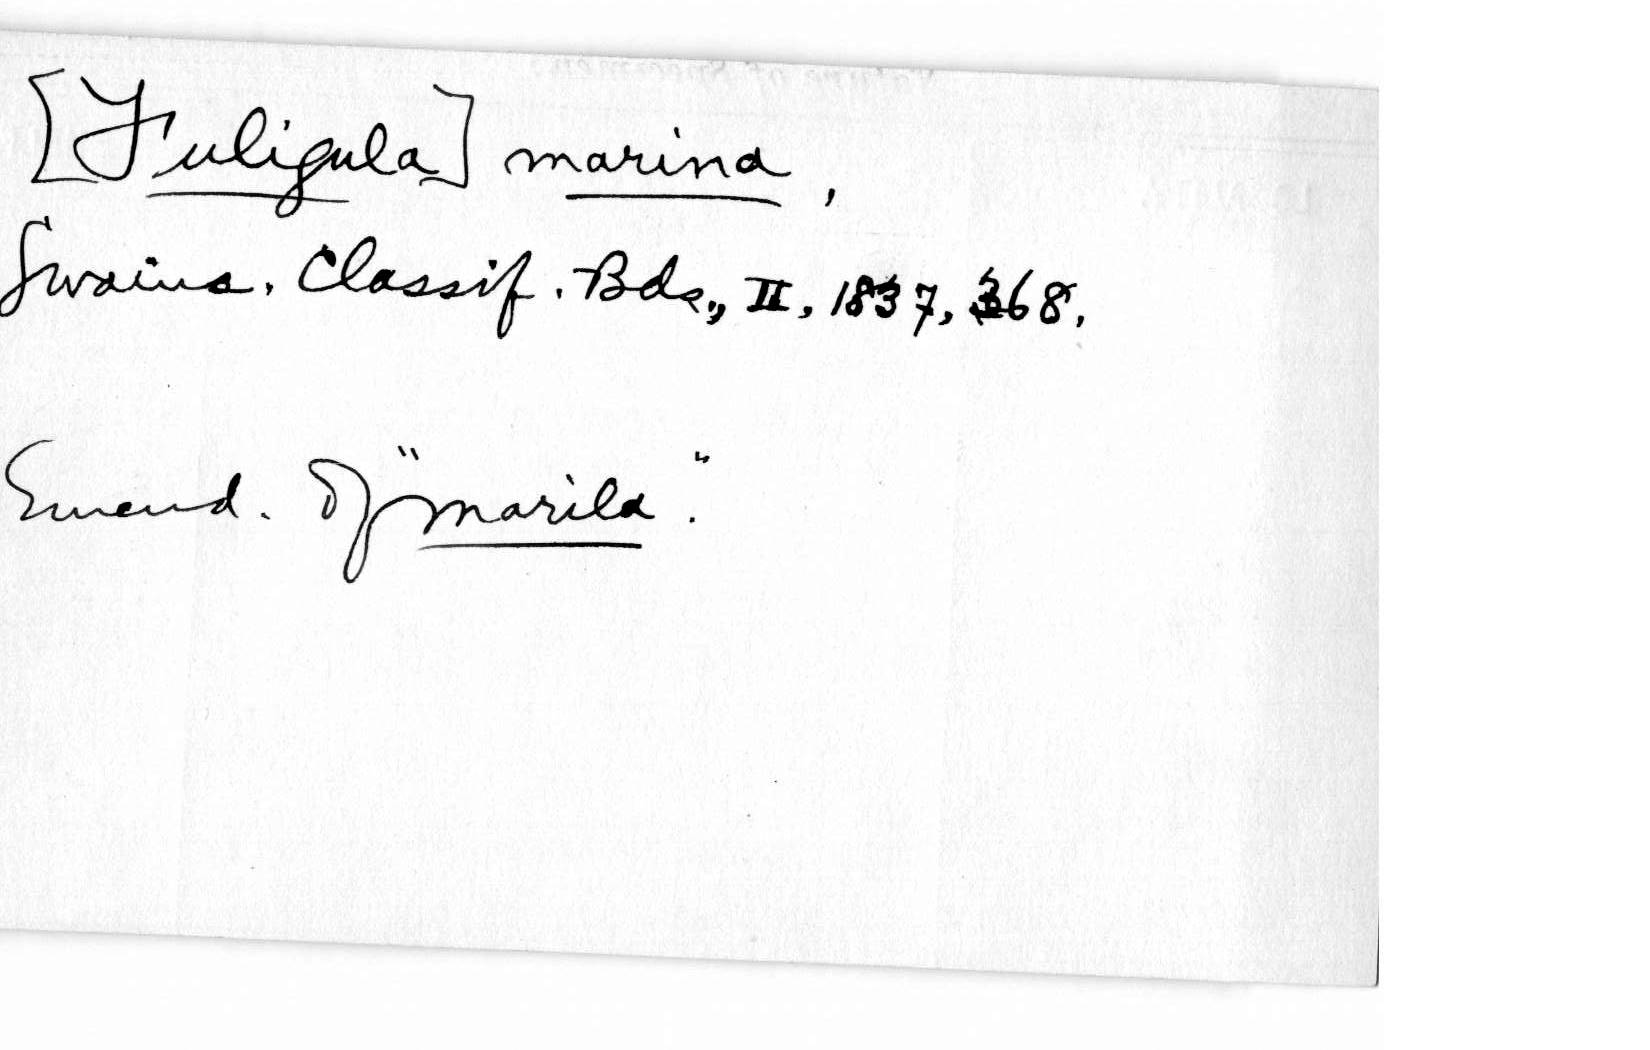 [Fuligula] marina,
Swains. Classif. Bds., II, 1837, 368.
Emend. of "marila".